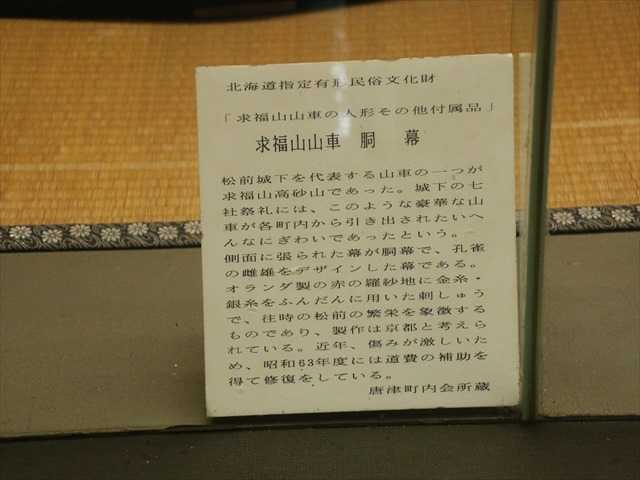 北海道指定有形民俗文化財
「求福山山車の人形その他付属品」
求福山山車 胴幕
松前城下を代表する山車の一つが
求福山高砂山であった。城下の七
社祭礼には、このような豪華な山
車が各町内から引き出されたいへ
んなにぎわいであったという。
側面に張られた幕が胴幕で、孔雀
の雌雄をデザインした幕である。
オランダ製の赤の羅紗地に金糸・
銀糸をふんだんに用いた刺しゅう
で、往時の松前の繁栄を象徴する
ものであり、製作は京都と考えら
れている。近年、傷みが激しいた
め、昭和63年度には道費の補助を
得て修復をしている。
唐津町内会所蔵